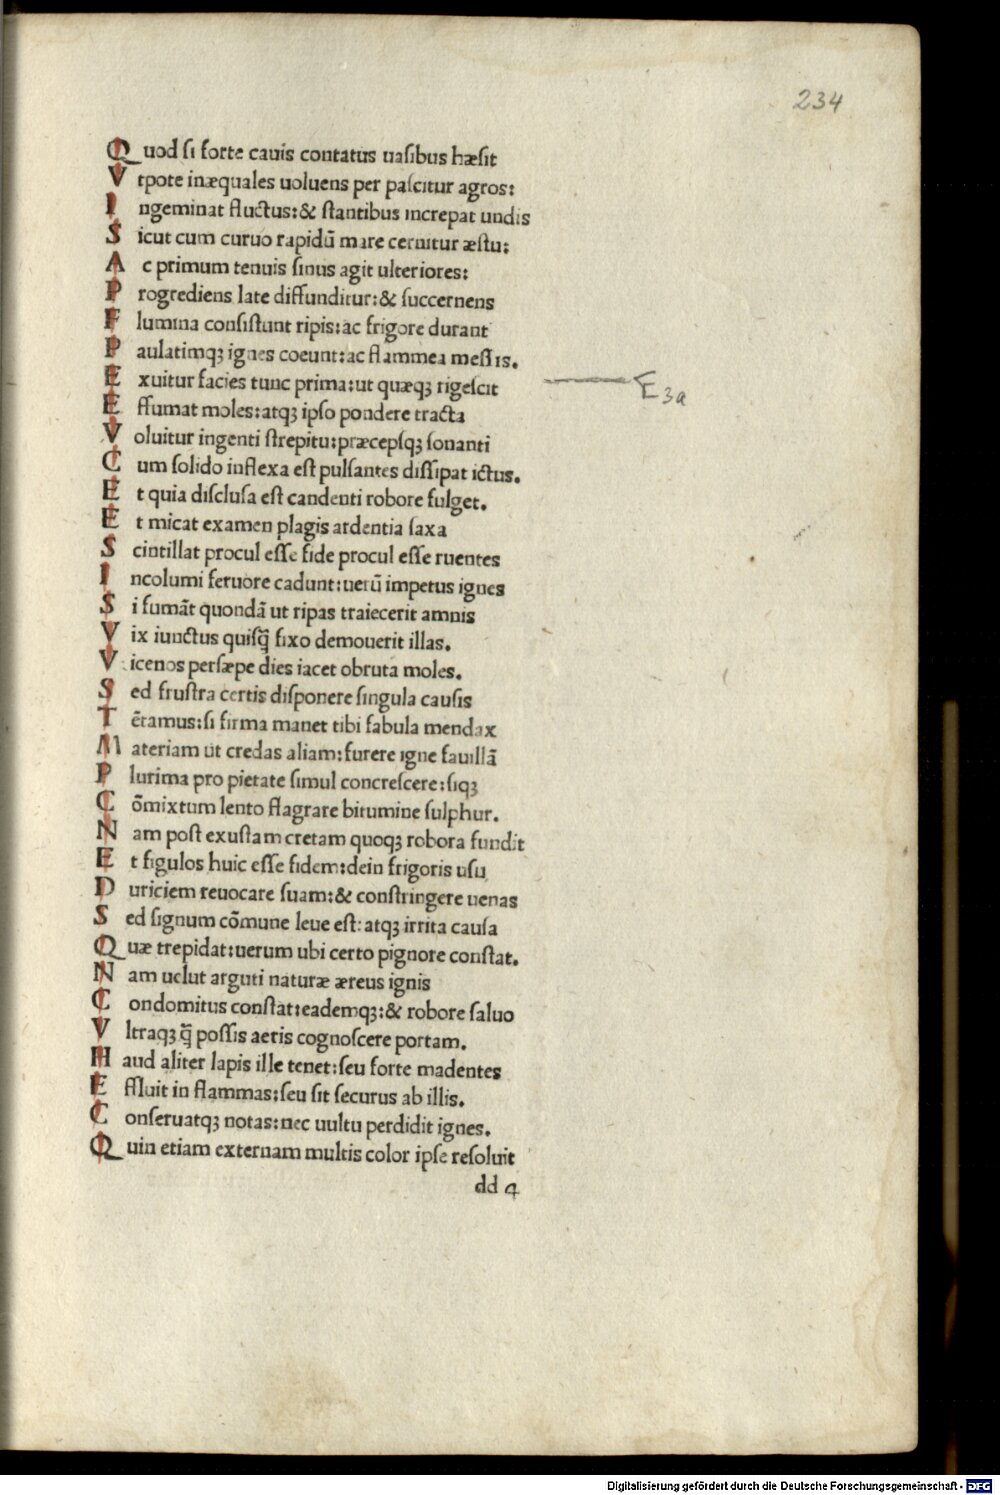 234
Quod si forte cauis contatus uasibus hæsit
Vtpote inæquales uoluens per pascitur agros:
Ingeminat fluctus:& stantibus increpat undis
Sicut cum curuo rapidũ mare cernitur æstu:
Ac primum tenuis sinus agit ulteriores:
Progrediens late diffunditur:& succernens
Flumina consistunt ripis:ac frigore durant
Paulatimqꝫ ignes coeunt:ac flammea messis.
Exuitur facies tunc prima:ut quæqꝫ rigescit
E3a
Effumat moles:atqꝫ ipso pondere tracta
Voluitur ingenti strepitu:præcepsqꝫ sonanti
Cum solido inflexa est pulsantes dissipat ictus.
Et quia disclusa est candenti robore fulget.
Et micat examen plagis ardentia saxa
Scintillat procul esse fide procul esse ruentes
Incolumi feruore cadunt:uerũ impetus ignes
Si fumãt quondã ut ripas traiecerit amnis
Vix iunctus quisq̃ fixo demouerit illas.
Vicenos persæpe dies iacet obruta moles.
Sed frustra certis disponere singula causis
Tẽtamus:si firma manet tibi fabula mendax
Materiam ut credas aliam:furere igne fauillã
Plurima pro pietate simul concrescere:siqꝫ
Cõmixtum lento flagrare bitumine sulphur.
Nam post exustam cretam quoqꝫ robora fundit
Et figulos huic esse fidem:dein frigoris usu
Duriciem reuocare suam:& constringere uenas
Sed signum cõmune leue est:atqꝫ irrita causa
Quæ trepidat:uerum ubi certo pignore constat.
Nam uelut arguti naturæ æreus ignis
Condomitus constat:eademqꝫ:& robore saluo
Vltraqꝫ q̃ possis aeris cognoscere portam.
Haud aliter lapis ille tenet:seu forte madentes
Effluit in flammas:seu sit securus ab illis.
Conseruatqꝫ notas:nec uultu perdidit ignes.
Quin etiam externam multis color ipse resoluit
dd 4
Digitalisierung gefördert durch die Deutsche Forschungsgemeinschaft - DFG